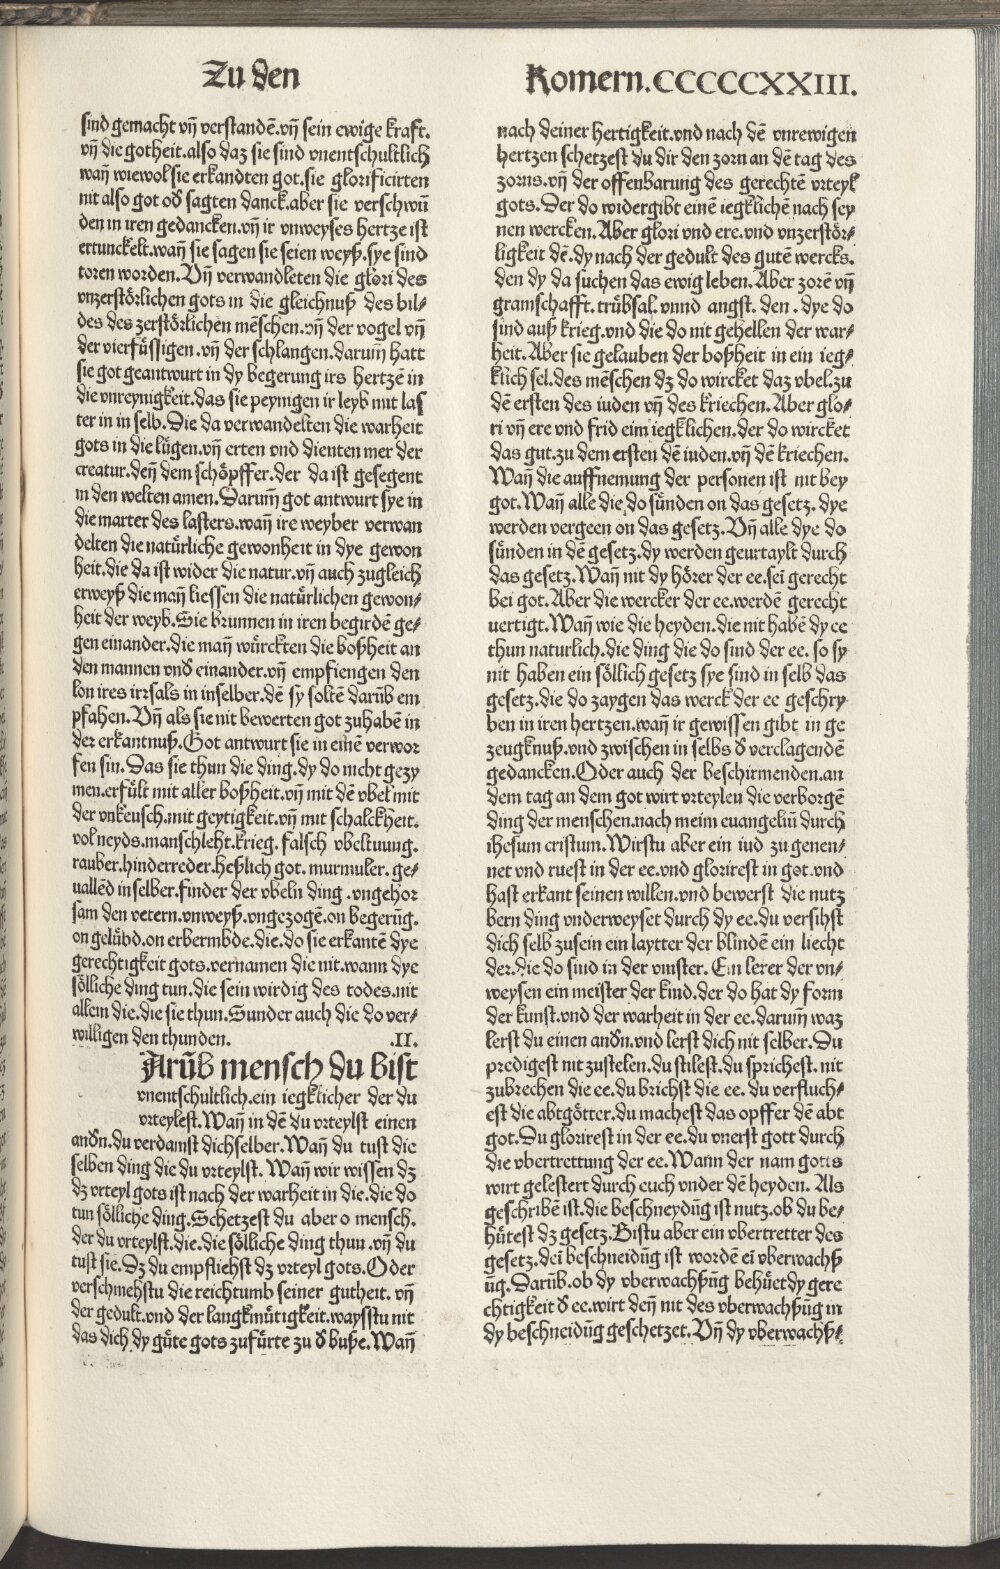 Zu den
Romern.CCCCCCXXIII.
sind gemacht vñ verstandẽ.vñ sein ewige kraft.
vñ die gotheit.also daz sie sind vnentschultlich
wañ wiewol sie erkandten got.sie glorificirten
nit also got od̕ sagten danck.aber sie verschwũ
den in iren gedancken.vñ ir vnweyses hertze ist
ertunckelt.wañ sie sagen sie seien weyß.sye sind
toren worden.Vñ verwandleten die glori des
vnzerstörlichen gots in die gleichnuß des bil⸗
des des zerstörlichen mẽschen.vñ der vogel vñ
der vierfüssigen.vñ der schlangen.darum̃ hatt
sie got geantwurt in dy begerung irs hertzẽ in
die vnreynigkeit.das sie peynigen ir leyb mit las
ter in in selb.Die da verwandelten die warheit
gots in die lügen.vñ erten vnd dienten mer der
creatur.deñ dem schöpffer.der da ist gesegent
in den welten amen.Darum̃ got antwurt sye in
die marter des lasters.wañ ire weyber verwan
delten die natürliche gewonheit in dye gewon
heit.die da ist wider die natur.vñ auch zugleich
erweyß die mañ liessen die natürlichen gewon⸗
heit der weyb.Sie brunnen in iren begirdẽ ge⸗
gen einander.die mañ würckten die boßheit an
den mannen vnd̕ einander.vñ empfiengen den
lon ires irrsals in inselber.dẽ sy soltẽ darũb em
pfahen.Vñ als sie nit bewerten got zuhabẽ in
der erkantnuß.Got antwurt sie in einẽ verwor
fen sin.Das sie thun die ding.dy do nicht gezy
men.erfült mit aller boßheit.vñ mit dẽ vbel mit
der vnkeusch.mit geytigkeit.vñ mit schalckheit.
vol neyds.manschleht.krieg. falsch vbeltuung.
rauber.hinderreder.heßlich got. murmuler. ge⸗
uallẽd in selber.finder der vbeln ding .vngehor
sam den vetern.vnweyß.vngezogẽ.on begerũg.
on gelübd.on erbermbde.die.do sie erkantẽ dye
gerechtigkeit gots.vernamen die nit.wann dye
sölliche ding tun.die sein wirdig des todes.nit
allein die.die sie thun.Sunder auch die do ver⸗
willigen den thunden. .II.
Arũb mensch du bist
vnentschultlich.ein iegklicher der du
vrteylest.Wañ in dẽ du vrteylst einen
and̕n.du verdamst dichselber.Wañ du tust die
selben ding die du vrteylst. Wañ wir wissen dz
dz vrteyl gots ist nach der warheit in die.die do
tun sölliche ding.Schetzest du aber o mensch.
der du vrteylst.die.die sölliche ding thun .vñ du
tust sie.Dz du empfliehst dz vrteyl gots.Oder
verschmehstu die reichtumb seiner gutheit. vñ
der gedult.vnd der langkmütigkeit.waysstu nit
das dich dy güte gots zufürte zu d̕ buße.Wañ
nach deiner hertigkeit.vnd nach dẽ vnrewigen
hertzen schetzest du dir den zorn an dẽ tag des
zorns.vñ der offenbarung des gerechtẽ vrteyl
gots.Der do widergibt einẽ iegklichẽ nach sey
nen wercken.Aber glori vnd ere.vnd vnzerstör⸗
ligkeit dẽ.dy nach der gedult des gutẽ wercks.
den dy da suchen das ewig leben.Aber zorẽ vñ
gramschafft.trübsal.vnnd angst. den . dye do
sind auß krieg.vnd die do nit gehellen der war⸗
heit.Aber sie gelauben der boßheit in ein ieg⸗
klich sel.des mẽschen dz do wircket daz vbel.zu
dẽ ersten des iuden vñ des kriechen.Aber glo⸗
ri vñ ere vnd frid eim iegklichen.der do wircket
das gut.zu dem ersten dẽ iuden.vñ dẽ kriechen.
Wañ die auffnemung der personen ist nit bey
got.Wañ alle die do sünden on das gesetz. dye
werden vergeen on das gesetz.Vñ alle dye do
sünden in dẽ gesetz.dy werden geurtaylt durch
das gesetz.Wañ nit dy hörer der ee.seĩ gerecht
bei got.Aber die wercker der ee.werdẽ gerecht
uertigt.Wañ wie die heyden.die nit habẽ dy ee
thun naturlich.die ding die do sind der ee. so sy
nit haben ein söllich gesetz sye sind in selb das
gesetz.die do zaygen das werck der ee geschry
ben in iren hertzen.wañ ir gewissen gibt in ge
zeugknuß.vnd zwischen in selbs d̕ verclagendẽ
gedancken.Oder auch der beschirmenden.an
dem tag an dem got wirt vrteylen die verborgẽ
ding der menschen.nach meim euangeliũ durch
ihesum cristum.Wirstu aber ein iud zu genen⸗
net vnd ruest in der ee.vnd glorirest in got.vnd
hast erkant seinen willen.vnd bewerst die nutz
bern ding vnderweyset durch dy ee.du versihst
dich selb zusein ein laytter der blindẽ ein liecht
der.die do sind in der vinster. Ein lerer der vn⸗
weysen ein meister der kind.der do hat dy form
der kunst.vnd der warheit in der ee.darum̃ waz
lerst du einen and̕n.vnd lerst dich nit selber.Du
predigest nit zustelen.du stilest.du sprichest. nit
zubrechen die ee.du brichst die ee. du verfluch⸗
est die abtgötter.du machest das opffer dẽ abt
got.Du glorirest in der ee.du vnerst gott durch
die vbertrettung der ee.Wann der nam gotts
wirt gelestert durch euch vnder dẽ heyden. Als
geschribẽ ist.die beschneydũg ist nutz.ob du be⸗
hütest dz gesetz.Bistu aber ein vbertretter des
gesetz.deĩ beschneidũg ist wordẽ eĩ vberwachß
ũg.Darũb.ob dy vberwachßũg behüet dy gere
chtigkeit d̕ ee.wirt deñ nit des vberwachßũg in
dy beschneidũg geschetzet.Vñ dy vberwachß⸗